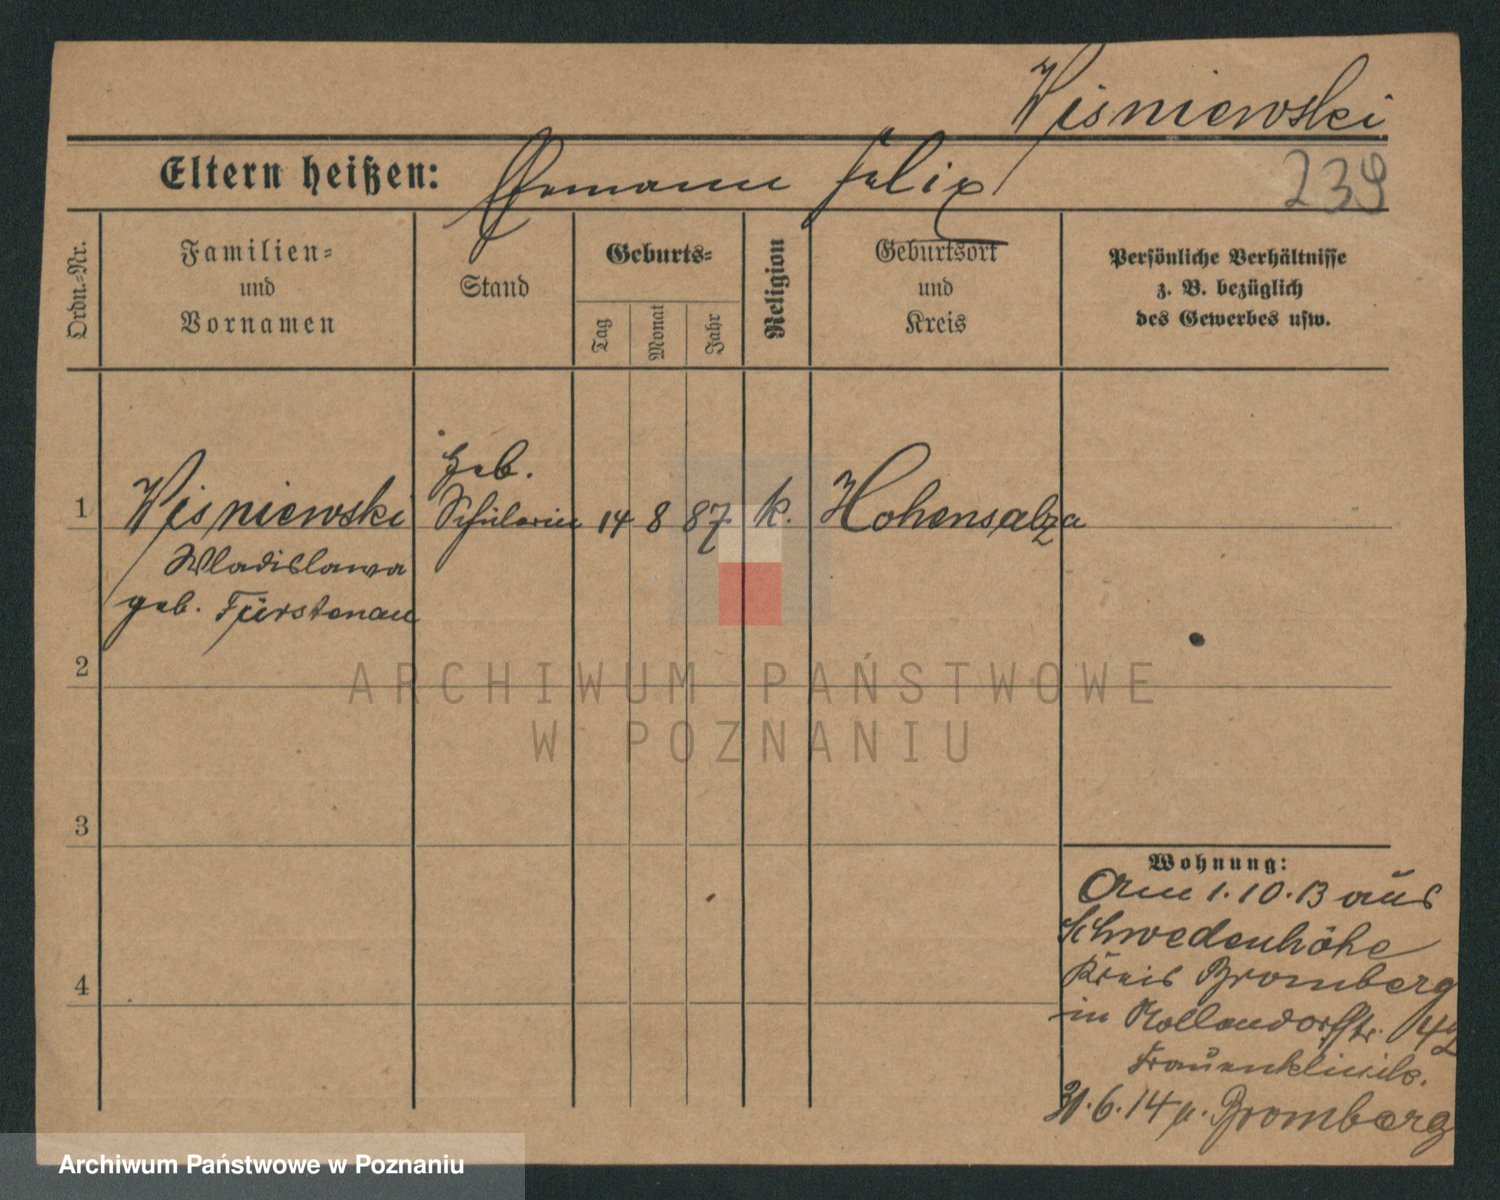 Wisniewski
Eltern heißen: Ehemann Felix
239
Ordn.-Nr.
Familien-
und
Vornamen
Stand
Geburts-
Tag
Monat
Jahr
Religion
Geburtsort
und
Kreis
Persönliche Verhältnisse
z. B. bezüglich
des Gewerbes usw.
1
Wisniewski
Wladislawa
geb. Fürstenau
Heb.
Schülerin
14
8
87
k.
Hohensalza
2
3
4
Wohnung:
Am 1.10.13 aus
Schwedenhöhe
Kreis Bromberg
in Nollendorfstr.
Frauenklinik.
6.14 n. Bromberg
ARCHIWUM PAŃSTWOWE
W POZNANIU
Archiwum Państwowe w Poznaniu